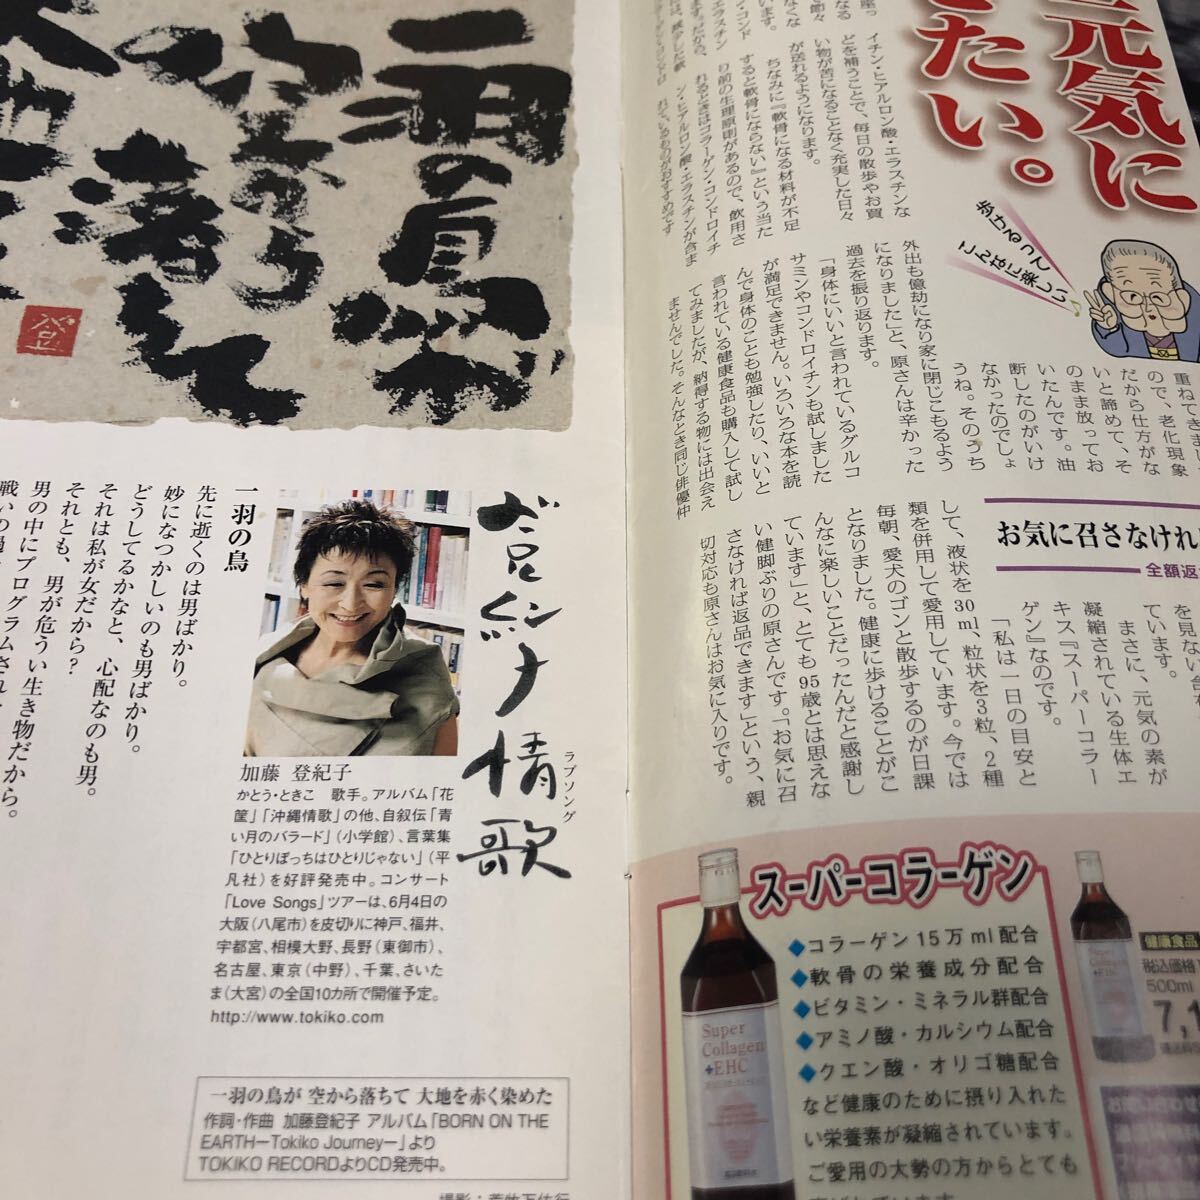 元気に
たい。
歩けるって
こんなに楽しい♪
イチン・ヒアルロン酸・エラスチンな
どを補うことで、毎日の散歩やお買
い物が苦になることなく充実した日々
が送れるようになります。
ちなみに『軟骨になる材料が不足
すると軟骨にならない』という当た
り前の生理原則があるので、飲用さ
れるときはコラーゲン・コンドロイチ
ン・ヒアルロン酸・エラスチンが含ま
れているものがおすすめです
外出も億劫になり家に閉じこもるよう
になりました」と、原さんは辛かった
過去を振り返ります。
「身体にいいと言われているグルコ
サミンやコンドロイチンも試しました
が満足できません。いろいろな本を読
んで身体のことも勉強したり、いいと
言われている健康食品も購入して試し
てみましたが、納得する物には出会え
ませんでした。そんなとき同じ俳優仲
重ねてきまし
ので、老化現象
だから仕方がな
いと諦めて、そ
のまま放ってお
いたんです。油
断したのがいけ
なかったのでしょ
うね。そのうち
お気に召さなけれ
全額返
を見ない
ています。
まさに、元気の素が
凝縮されている生体エ
キス『スーパーコラー
ゲン』なのです。
「私は一日の目安と
して、液状を30ml、粒状を3粒、2種
類を併用して愛用しています。今では
毎朝、愛犬のゴンと散歩するのが日課
となりました。健康に歩けることがこ
んなに楽しいことだったんだと感謝し
ています」と、とても95歳とは思えな
い健脚ぶりの原さんです。「お気に召
さなければ返品できます」という、親
切対応も原さんはお気に入りです。
スーパーコラーゲン
◆コラーゲン15万ml配合
◆軟骨の栄養成分配合
◆ビタミン・ミネラル群配合
◆アミノ酸・カルシウム配合
◆クエン酸・オリゴ糖配合
など健康のために摂り入れた
い栄養素が凝縮されています。
ご愛用の大勢の方からとても
Super
Collagen
+EHC
健康食品
税込価格
500ml
7,1
一羽の鳥が
空から
落ちて
情歌
ラブソング
加藤 登紀子
かとう・ときこ 歌手。アルバム「花
筐」「沖縄情歌」の他、自叙伝「青
い月のバラード」(小学館)、言葉集
「ひとりぼっちはひとりじゃない」(平
凡社)を好評発売中。コンサート
「Love Songs」ツアーは、6月4日の
大阪(八尾市)を皮切りに神戸、福井、
宇都宮、相模大野、長野(東御市)、
名古屋、東京(中野)、千葉、さいた
ま(大宮)の全国10カ所で開催予定。
http://www.tokiko.com
一羽の鳥
先に逝くのは男ばかり。
妙になつかしいのも男ばかり。
どうしてるかなと、心配なのも男。
それは私が女だから?
それとも、男が危うい生き物だから。
男の中にプログラムされ
一羽の鳥が 空から落ちて 大地を赤く染めた
作詞・作曲 加藤登紀子 アルバム「BORN ON THE
EARTH―Tokiko Journey―」より
TOKIKO RECORDよりCD発売中。